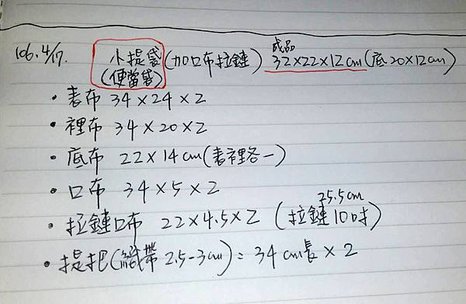 106.4/17. 小提袋(加口布拉鏈) 成品 32×22×12cm(底20×12cm)
(便當袋)
• 表布 34×24×2
• 裡布 34×20×2
• 底布 22×14cm(表裡各一)
• 口布 34×5×2
• 拉鏈口布 22×4.5×2 (拉鏈10吋) 25.5cm
• 提把(織帶2.5-3cm)=34cm長×2